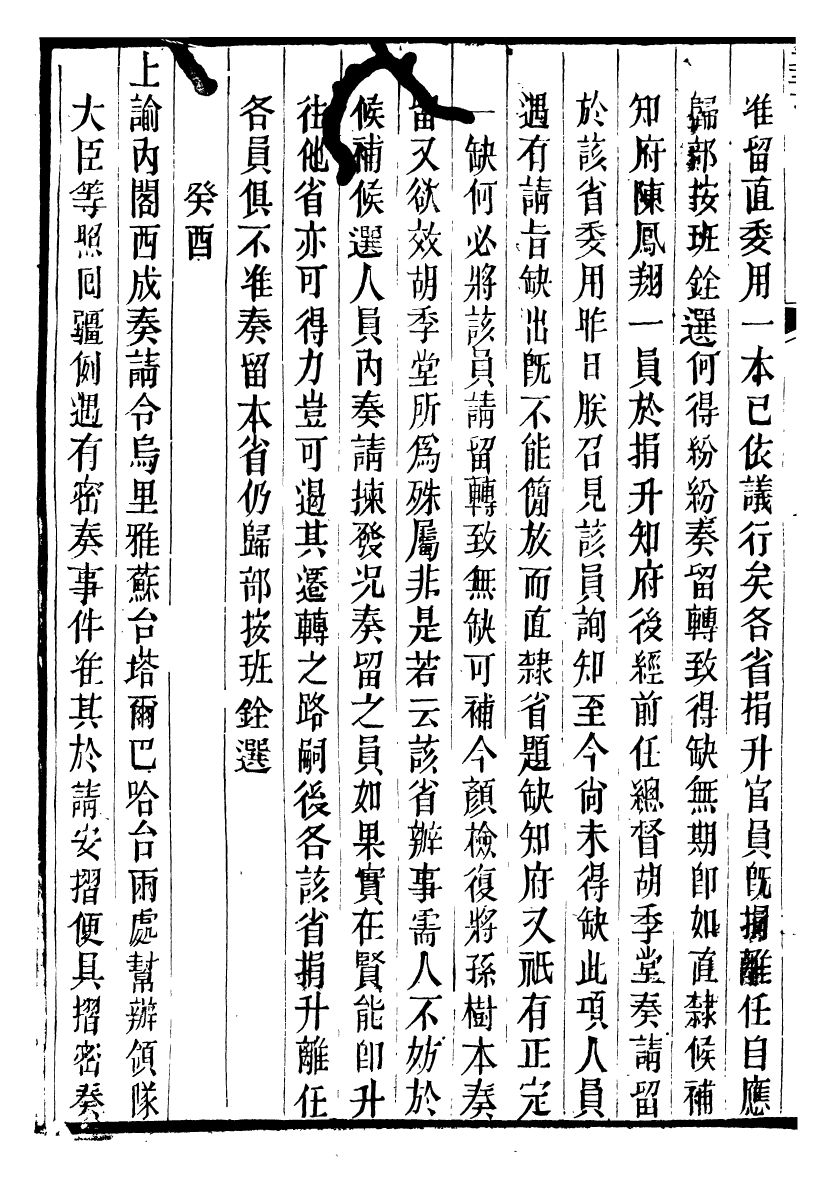 准留直委用一本已依議行矣各省捐升官員旣捐離任自應
歸部按班銓選何得紛紛奏留轉致得缺無期卽如直隸候補
知府陳鳳翔一員於捐升知府後經前任總督胡季堂奏請留
於該省委用昨日朕召見該員詢知至今尙未得缺此項人員
遇有請旨缺出旣不能簡放而直隸省題缺知府又祇有正定
一缺何必將該員請留轉致無缺可補今顏檢復將孫樹本奏
留又欲效胡季堂所爲殊屬非是若云該省辦事需人不妨於
候補候選人員內奏請揀發况奏留之員如果實在賢能卽升
往他省亦可得力豈可遏其遷轉之路嗣後各該省捐升離任
各員俱不准奏留本省仍歸部按班銓選
癸酉
上諭內閣西成奏請令烏里雅蘇台塔爾巴哈台兩處幫辦領隊
大臣等照回疆例遇有密奏事件准其於請安摺便具摺密奏